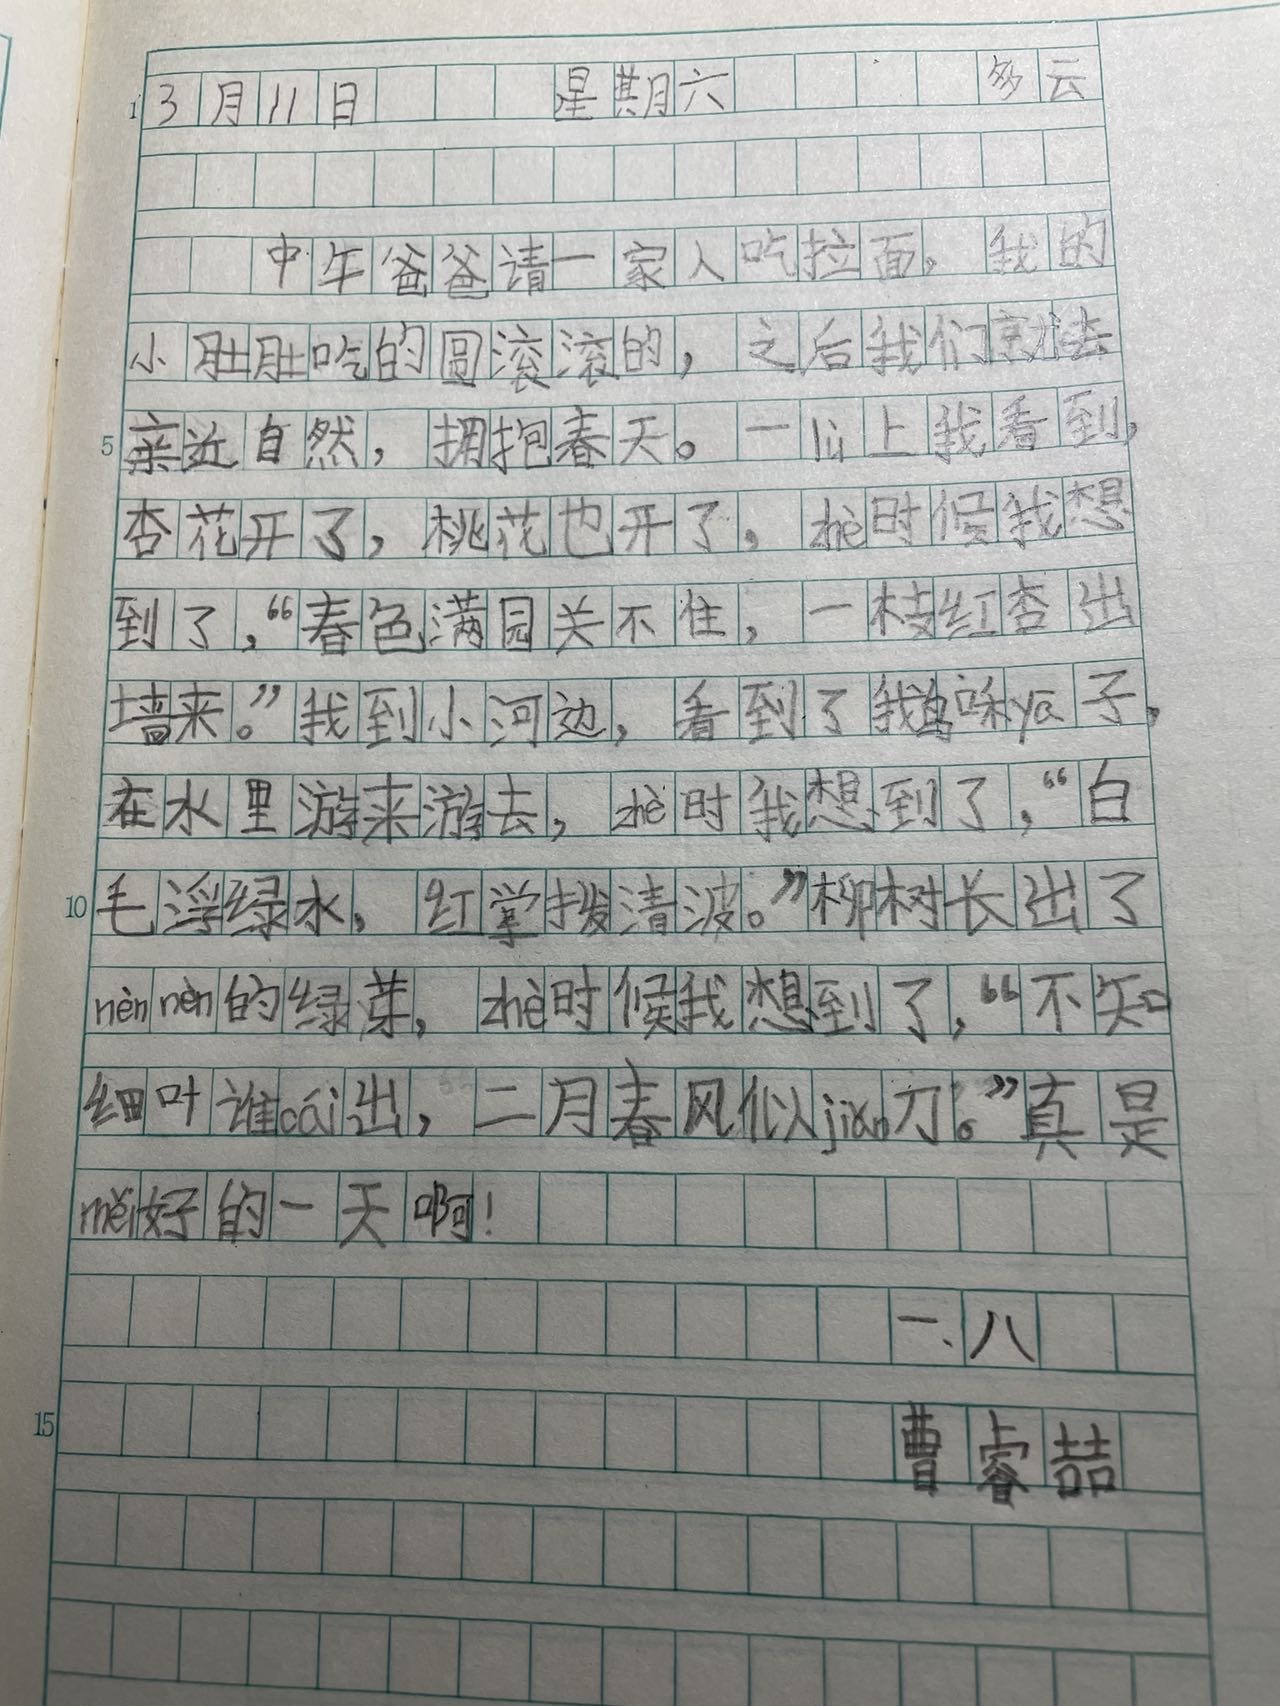 1 3月11日 星期六 多云
中午爸爸请一家人吃拉面，我的
小肚肚吃的圆滚滚的，之后我们就去
5 亲近自然，拥抱春天。一lù上我看到，
杏花开了，桃花也开了，zhè时候我想
到了，“春色满园关不住，一枝红杏出
墙来。”我到小河边，看到了我鸟咪ya子，
在水里游来游去，zhè时我想到了，“白
10 毛浮绿水，红掌拨清波。”柳树长出了
nèn nèn的绿芽，zhè时候我想到了，“不知
细叶谁cái出，二月春风似jiǎn刀。”真是
měi好的一天啊！
一、八
15 曹睿喆